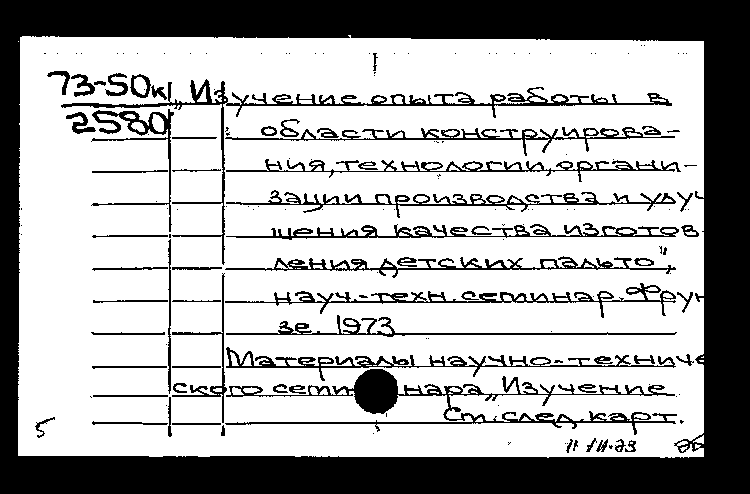 73-50к „Изучение опыта работы в
2580 области конструирова-
ния, технологии, органи-
зации производства и улуч
шения качества изготов
ления детских пальто",
науч.-техн. семинар. Фрун
зе. 1973
Материалы научно-техниче
ского семинара „Изучение
См. след. карт.
5